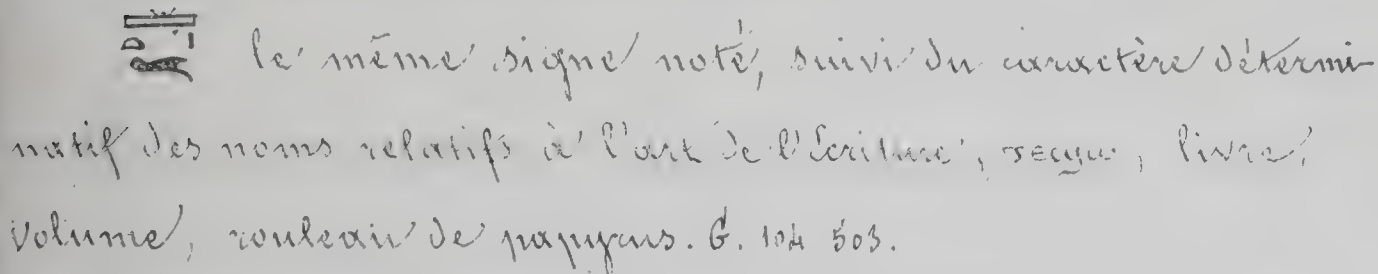 le même signe noté, suivi du caractère détermi-
natif des noms relatifs à l'art de l'Écriture, livre,
volume, rouleau de papyrus. G. 104 503.